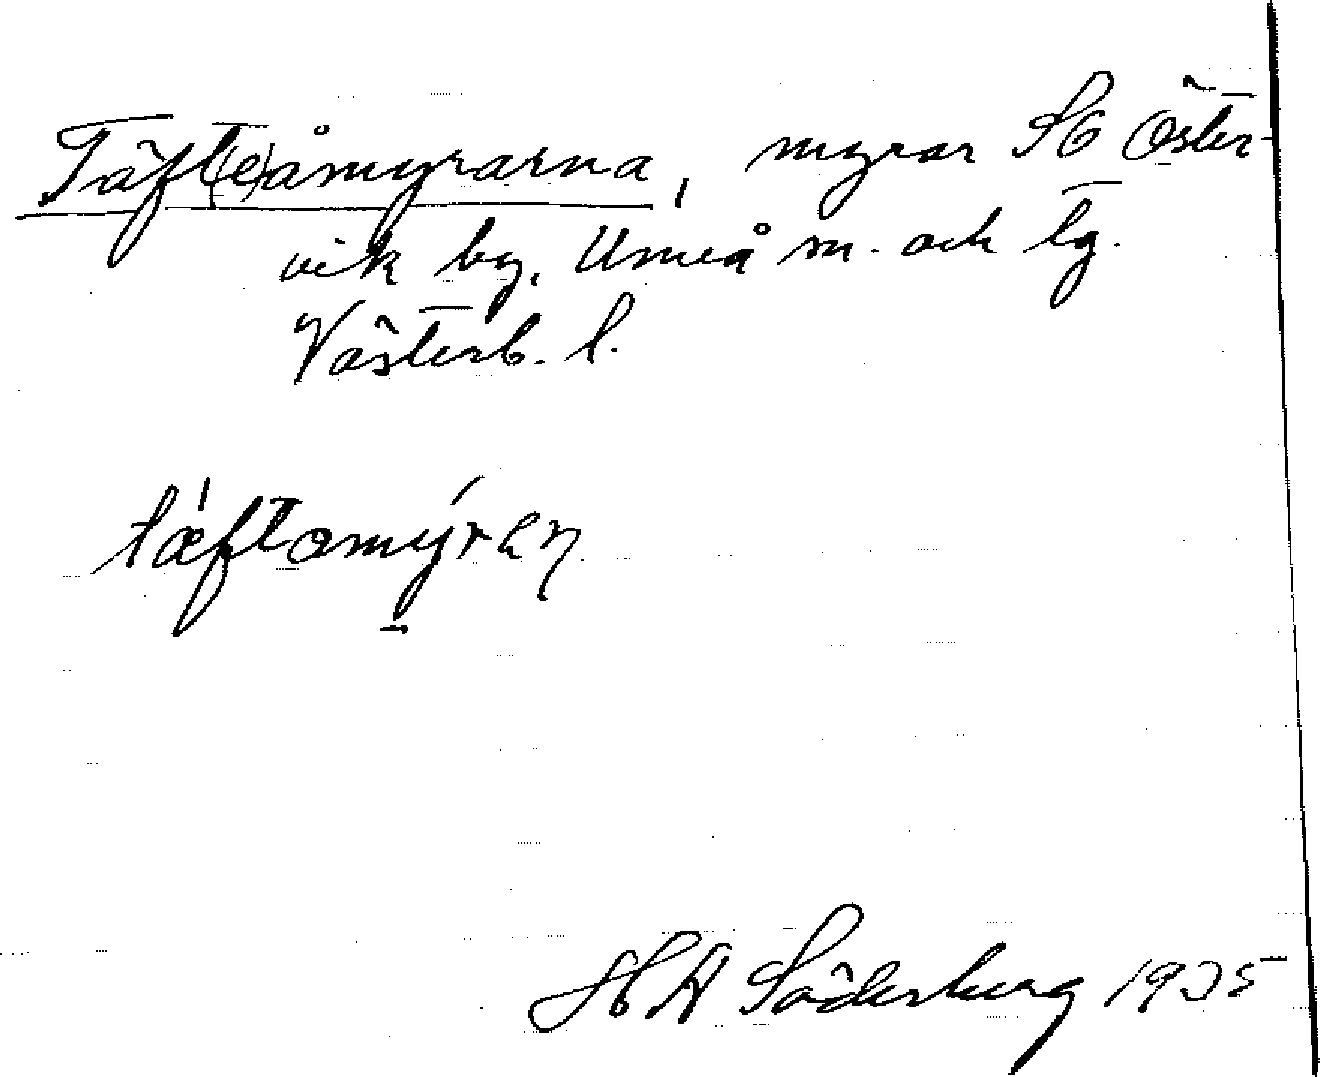 Täft(e)åmyrarna, myrar SO Öster-
vik by, Umeå sn. och lg.
Västerb. l.
tæftamýren
H H Söderberg 1935